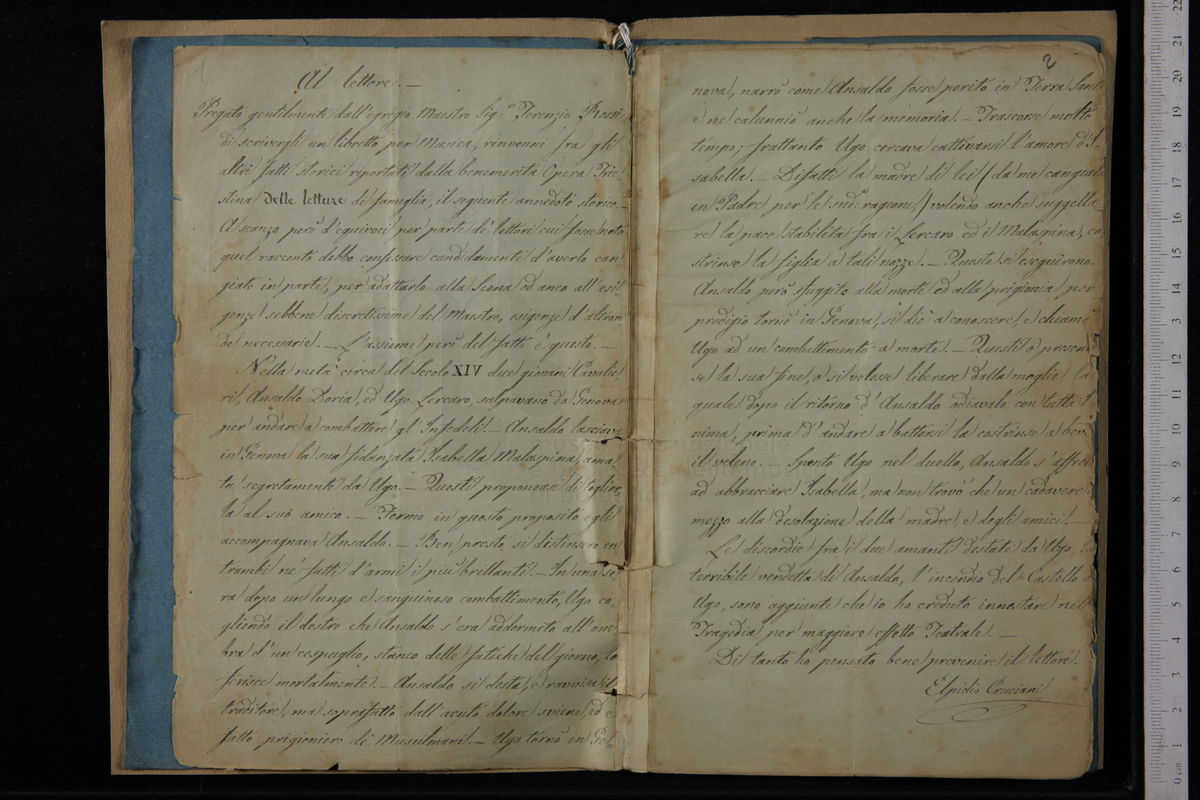 1
Al lettore. —
Pregato gentilmente dall'egregio Maestro Sig.r Terenzio Rossi
di scrivergli un libretto per Musica, rinvenni fra gli
altri fatti storici riportati dalla benemerita Opera Trie-
stina delle letture di famiglia, il seguente annedoto storico. —
A scanzo però d'equivoci per parte de' lettori cui fosse noto
quel racconto debbo confessare candidamente d'averlo can-
giato in parte, per adattarlo alla Scena ed anco all'esi-
genze sebbene discretissime del Maestro, esigenze d'altron-
de necessarie. — L'assieme però del fatto è questo. —
Nella metà circa del Secolo XIV due giovani Cavalie-
ri, Ansaldo Doria, ed Ugo Lercaro, salpavano da Genova
per andare a combattere gl'Infedeli. — Ansaldo lasciava
in Genova la sua fidanzata Isabella Malaspina, ama-
ta segretamente da Ugo. — Questi proponeasi di toglier-
la al suo amico. — Fermo in questo proposito egli
accompagnava Ansaldo. — Ben presto si distinsero en-
trambi ne' fatti d'armi i più brillanti. — In una se-
ra dopo un lungo e sanguinoso combattimento, Ugo co-
gliendo il destro che Ansaldo s'era addormito all'om-
bra d'un cespuglio, stanco delle fatiche del giorno, lo
ferisce mortalmente. — Ansaldo si desta, e ravvisa il
traditore, ma soprafatto dall'acuto dolore sviene, ed è
fatto prigioniero de' Musulmani. — Ugo tornò in Ge-
2
nova, narrò come Ansaldo fosse perito in Terra Santa
e ne calunniò anche la memoria. — Trascorse molto
tempo; frattanto Ugo cercava cattivarsi l'amore d'I-
sabella. — Difatti la madre di lei (da me cangiata
in Padre per le sud.e ragioni) volendo anche suggella-
re la pace stabilita fra i Lercaro ed i Malaspina, co-
strinse la figlia a tali nozze. — Queste si eseguirono.
Ansaldo però sfuggito alla morte ed alla prigionia per
prodigio tornò in Genova, si diè a conoscere, e chiamò
Ugo ad un combattimento a morte. — Questi o presen-
se la sua fine, o si volesse liberare dalla moglie, la
quale dopo il ritorno d'Ansaldo odiavalo con tutta l'a-
nima, prima d'andare a battersi la costrinse a bere
il veleno. — Spento Ugo nel duello, Ansaldo s'affrettò
ad abbracciare Isabella, ma non trovò che un cadavere in
mezzo alla desolazione della madre, e degli amici. —
Le discordie fra i due amanti destate da Ugo, la
terribile vendetta di Ansaldo, l'incendio del Castello di
Ugo, sono aggiunte che io ho creduto innestare nel
Tragedia per maggiore effetto Teatrale. —
Di tanto ho pensato bene prevenire il lettore.
Elpidio Cruciani